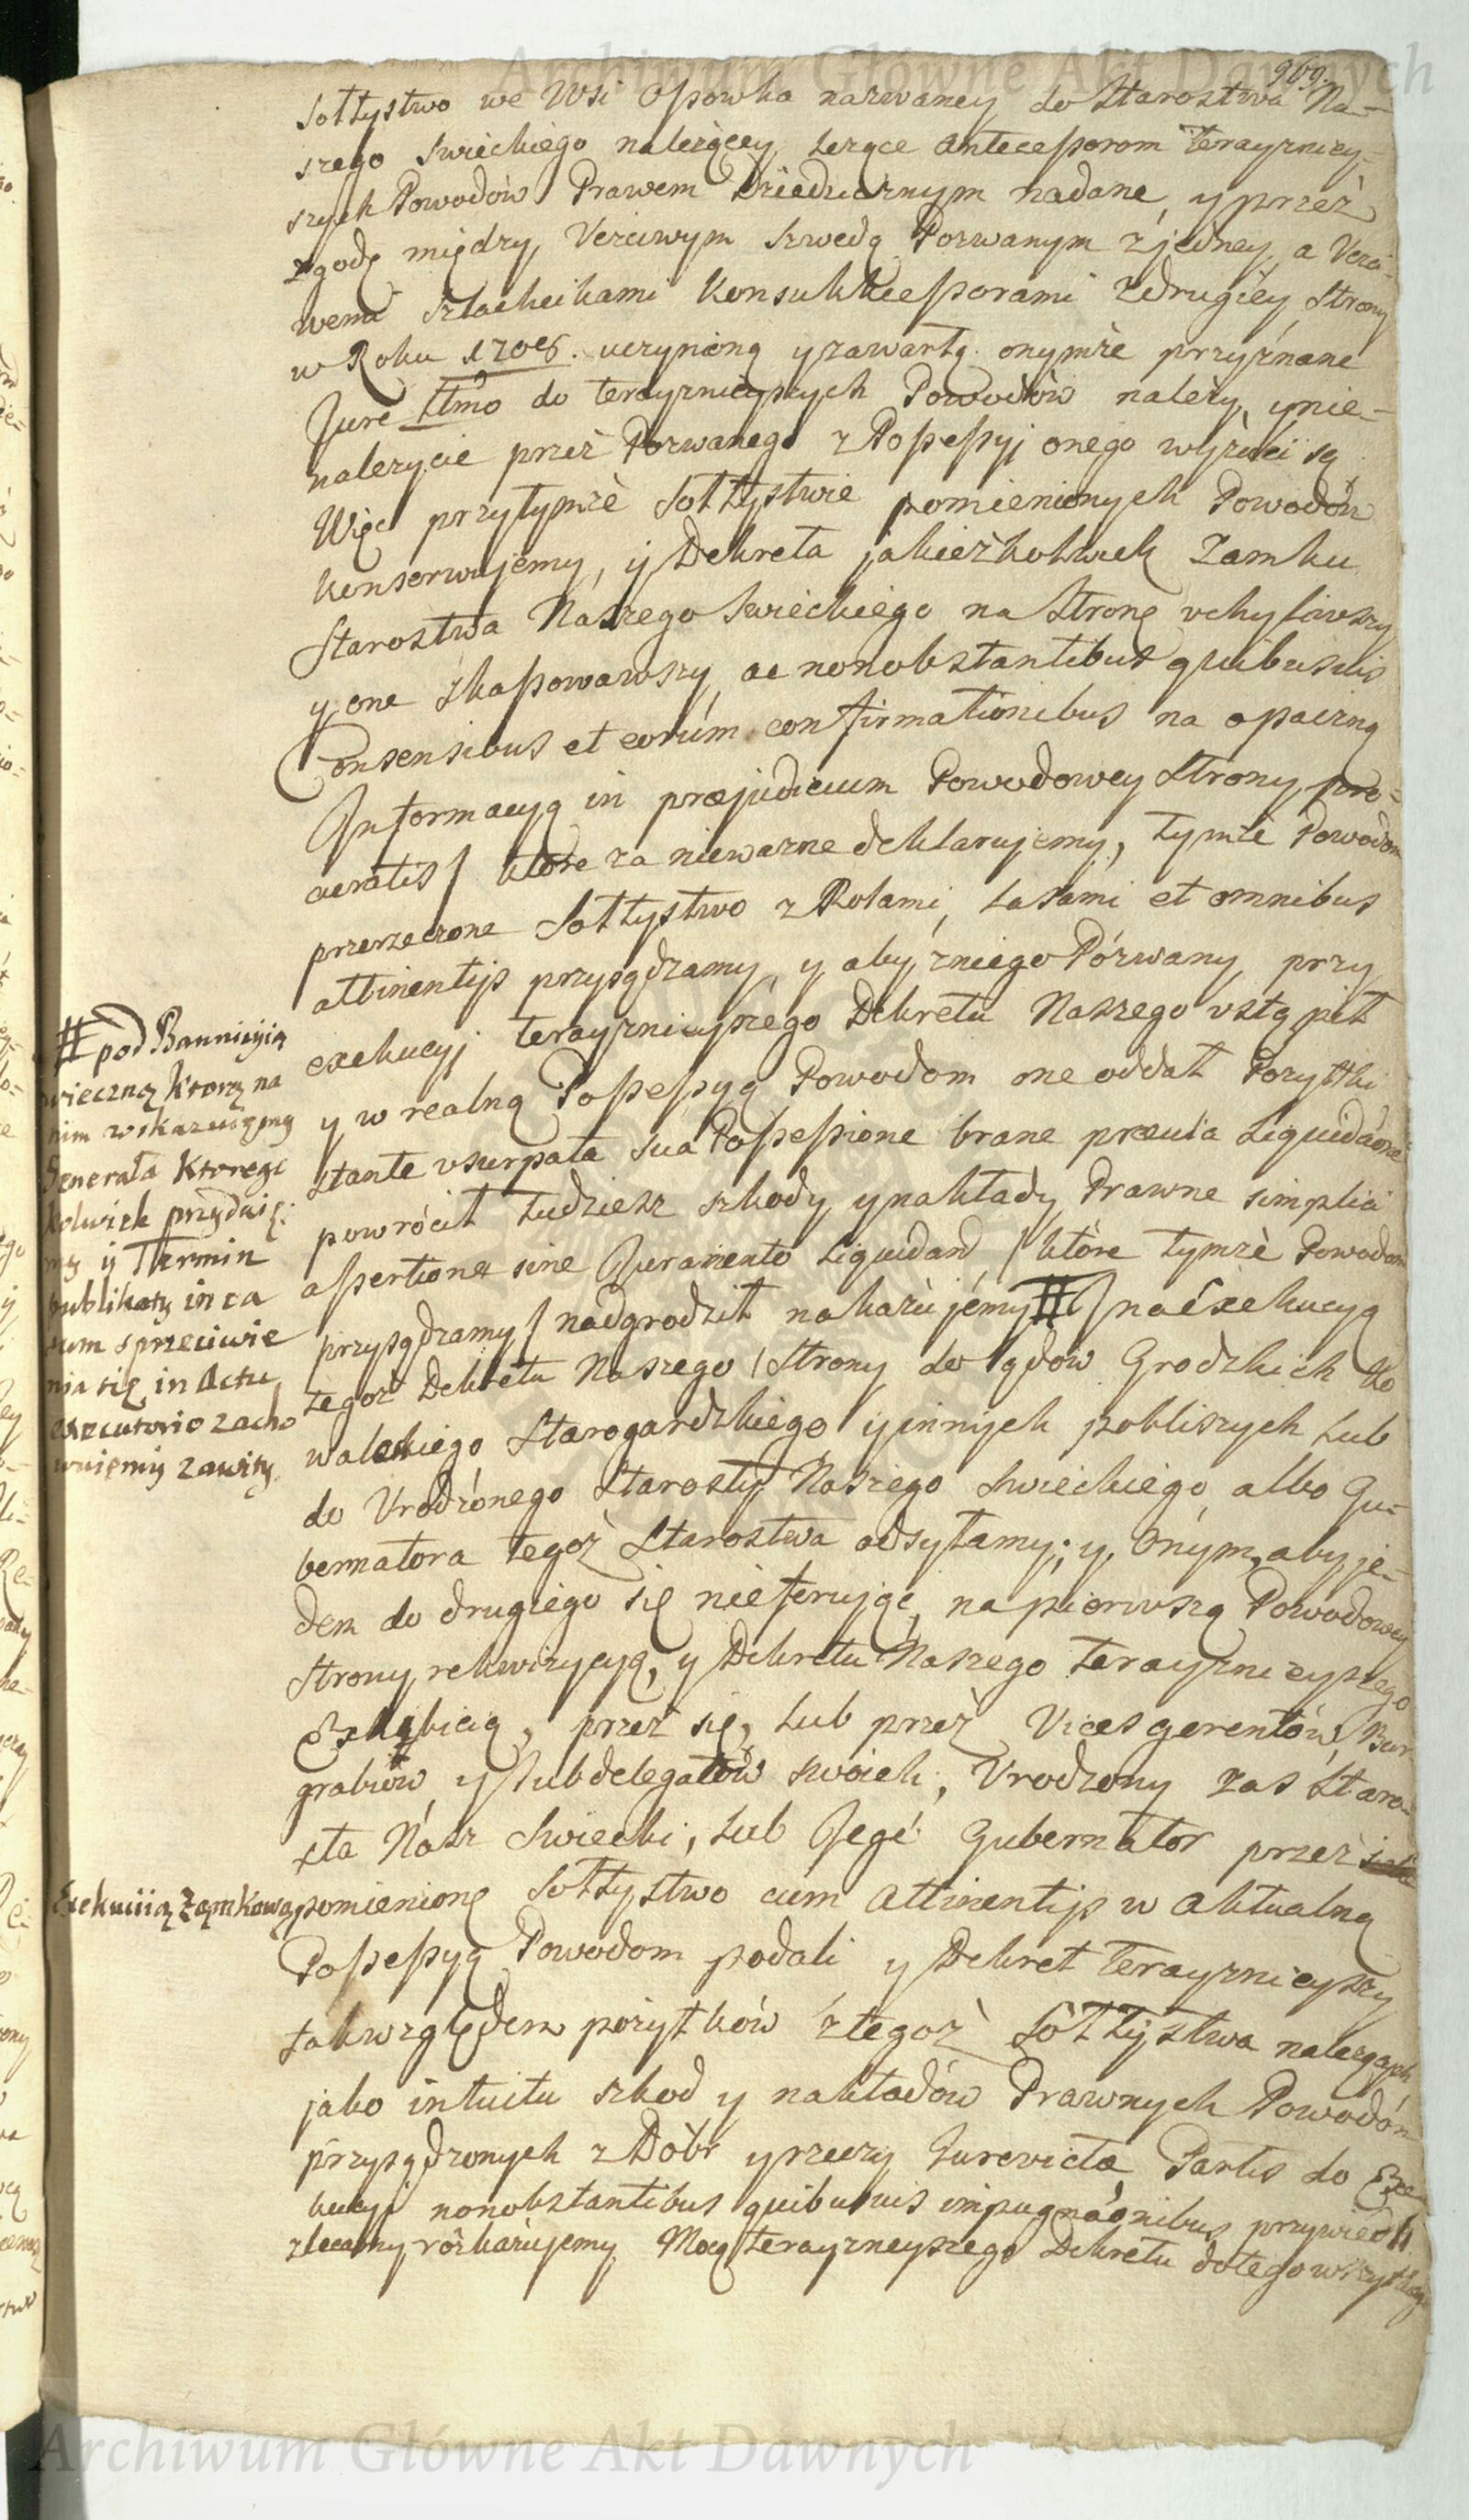 Archiwum Główne Akt Dawnych
969.
Sołtystwo we Wsi Osowka nazwaney do Starostwa Na-
szego Swieckiego należącey leżące Antecessorom terayzniey-
szych Powodów Prawem Dziedzicznym nadane, y przez
zgodę między Uczciwym Szwedą Pozwanym z jedney, a Ucz-
wemi Szlachcikami Konsukcessorami z drugiey Strony
w Roku 1706. uczynioną y zawartą onymże przyznane
Jure ttmo do terayznieyszych Powodów należy, y nie-
należycie przez Pozwanego z Possessyi onego wyzuci są
Więc przytymże Sołtystwie pomienionych Powodów
konserwujemy, y Dekreta jakieżkolwiek Zamku
Starostwa Naszego Swieckiego na Stronę uchyliwszy
y one zkassowawszy ac nonobstantibus quibusvis
Consensibus et eorum confirmationibus na opaczną
Informacyą in præjudicium Powodowey Strony pro-
curatis / które za nieważne deklarujemy, tymże Powodom
przerzeczone Sołtystwo z Rolami, Lasami et omnibus
attinentijs przysądzamy y aby z niego Pozwany przy
exekucyj terayznieyszego Dekretu Naszego ustąpił
y w realną Possessyą Powodom one oddał Pożytki
stante usurpata sua Possessione brane prævia Liquidaõne
powrócił tudziesz szkody y nakłady Prawne simplici
assertione sine Juramento Liquidand / które tymże Powodom
przysądzamy / nadgrodził nakazujemy # / na Exekucyą
tegoż Dekretu Naszego / Strony do Sądów Grodzkich Ko
walskiego Starogardzkiego y innych pobliszych lub
do Urodzonego Starosty Naszego Swieckiego albo Gu-
bernatora tegoż Starostwa odsyłamy; y Onym, aby je-
den do drugiego się nieferując, na pierwszą Powodowey
Strony rekwizycyą, y Dekretu Naszego terayznieyszego
Exhibicią, przez się, lub przez Vicesgerentów, Bur-
grabiów, y Subdelegatów swoich, Urodzony zaś Staro-
sta Nasz Swiecki, lub Jego Gubernator przez
pomienione Sołtystwo cum Attinentijs w Aktualną
Possessyą Powodom podali y Dekret terayznieyszy
tak względem pożytków z tegoż Sołtystwa należących
jako intuitu szkod y nakładów Prawnych Powodóm
przysądzonych z Dóbr y rzeczy Jurevictæ Partis do Exe
kucyi nonobstantibus quibusvis impugnaõnibus przywiedli
zlecamy rozkazujemy Mocą terayznieyszego Dekretu do tego wszytkiego
# pod Bannicyią
wieczną ktorą na
nim wskazuięmy
Generała Ktorego
kolwiek przydaię:
my y Thermin
publikaty in ca
sum sprzeciwie
nia się in Actu
executorio zacho
wuięmy zawity
Exekuciią Zamkową
Archiwum Główne Akt Dawnych